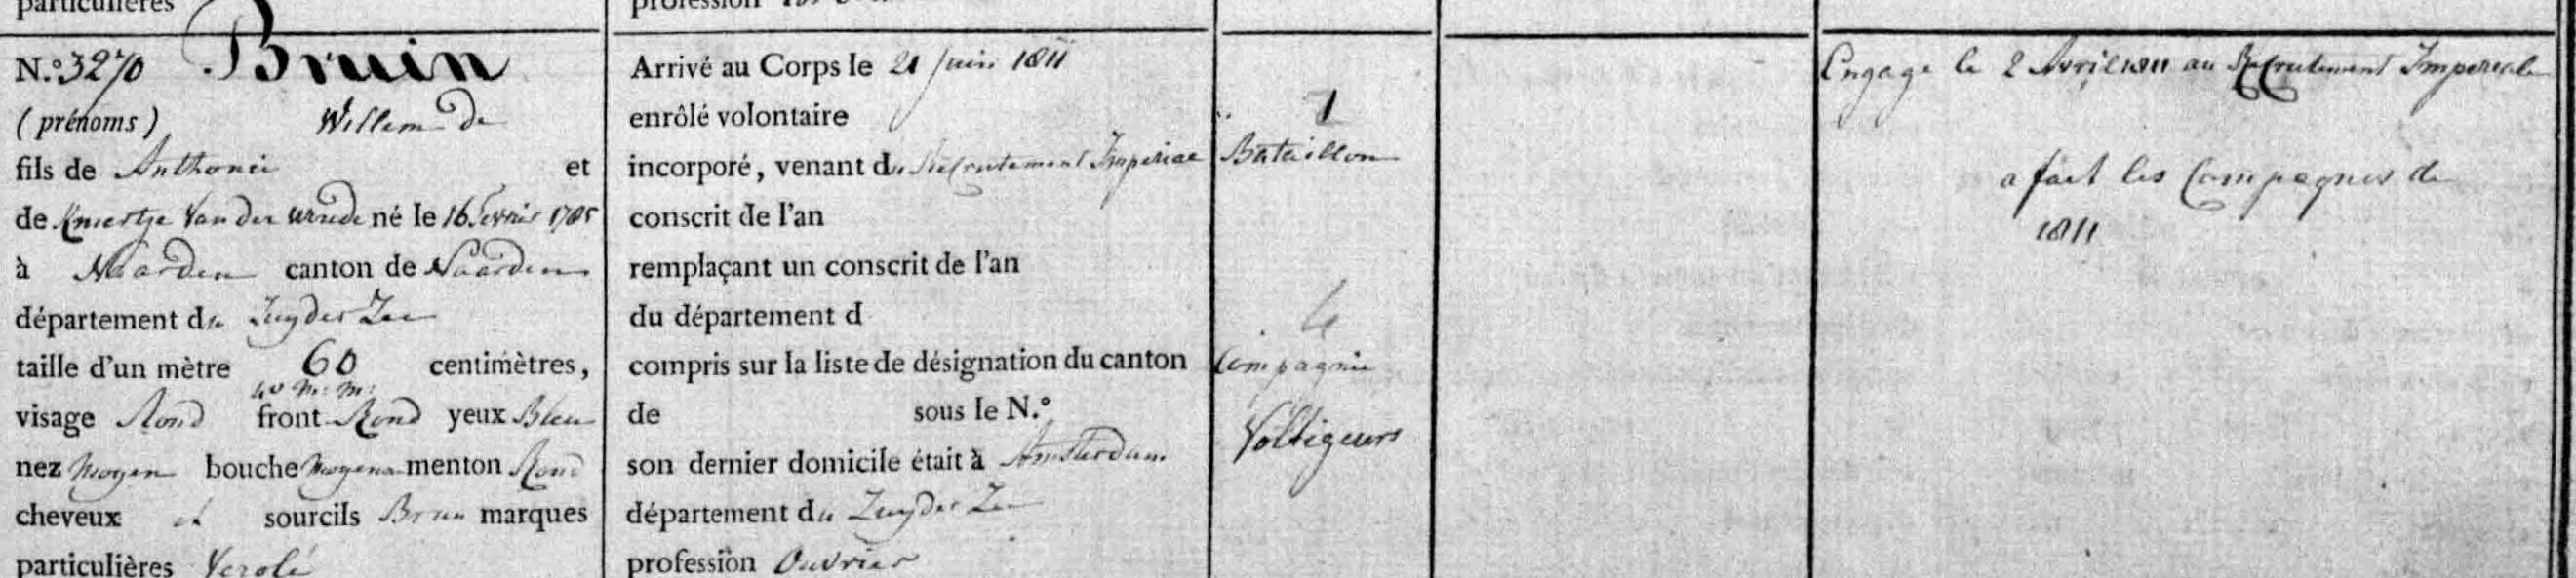 particulières
profession
N.º 3270 Bruin
(prénoms) Willem de
fils de Anthonie et
de Kniertje Van der Wrede né le 16 Fevrir 1785
à Naarden canton de Naarden
département du Zuyder Zee
taille d'un mètre 60 centimètres,
40 m: m:
visage Rond front Rond yeux Bleu
nez moyen bouche moyena menton Rond
cheveux et sourcils Brun marques
particulières Verolé
Arrivé au Corps le 21 Juin 1811
enrôlé volontaire
incorporé, venant du Recrutement Imperiae
conscrit de l'an
remplaçant un conscrit de l'an
du département d
compris sur la liste de désignation du canton
de sous le N.º
son dernier domicile était à Amsterdam
département du Zuyder Zee
profession Ouvrier
1
Bataillon
4
Compagnie
Voltigeurs
Engage le 2 Avril 1811 au Recrutement Imperiale
a fait les Campagnes de
1811